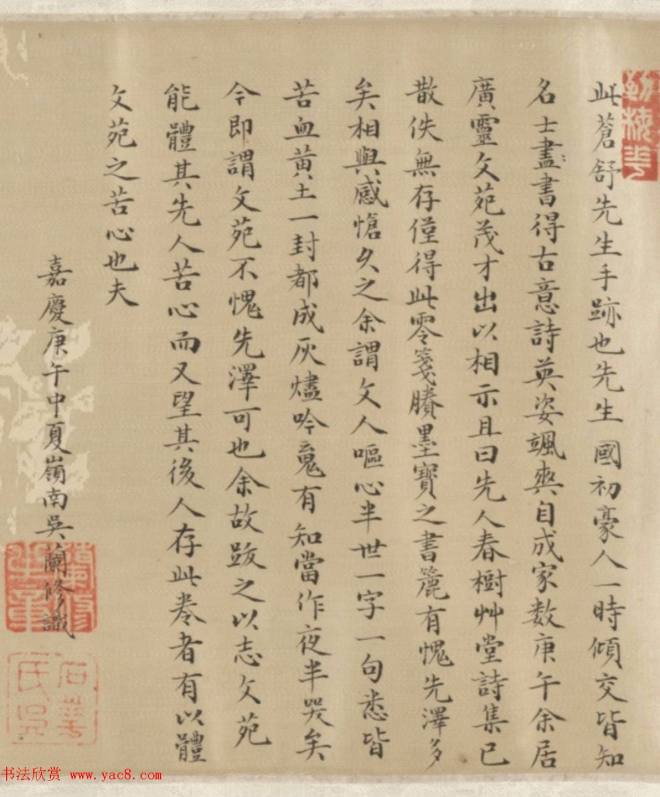 此蒼舒先生手跡也先生國初豪人一時傾交皆知
名士盡書得古意詩英姿颯爽自成家數庚午余居
廣靈文苑茂才出以相示且曰先人春樹艸堂詩集已
散佚無存僅得此零箋賸墨寶之書簏有愧先澤多
矣相與感愴久之余謂文人嘔心半世一字一句悉皆
苦血黃土一封都成灰燼吟魂有知當作夜半哭矣
今即謂文苑不愧先澤可也余故跋之以志文苑
能體其先人苦心而又望其後人存此卷者有以體
文苑之苦心也夫
嘉慶庚午中夏嶺南吳蘭修識
石華
氏吳
书法欣赏 www.yac8.com